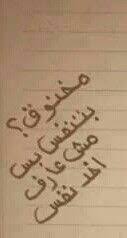 مخنوق؟
بتتنفس بس
مش عارف
اخد نفس